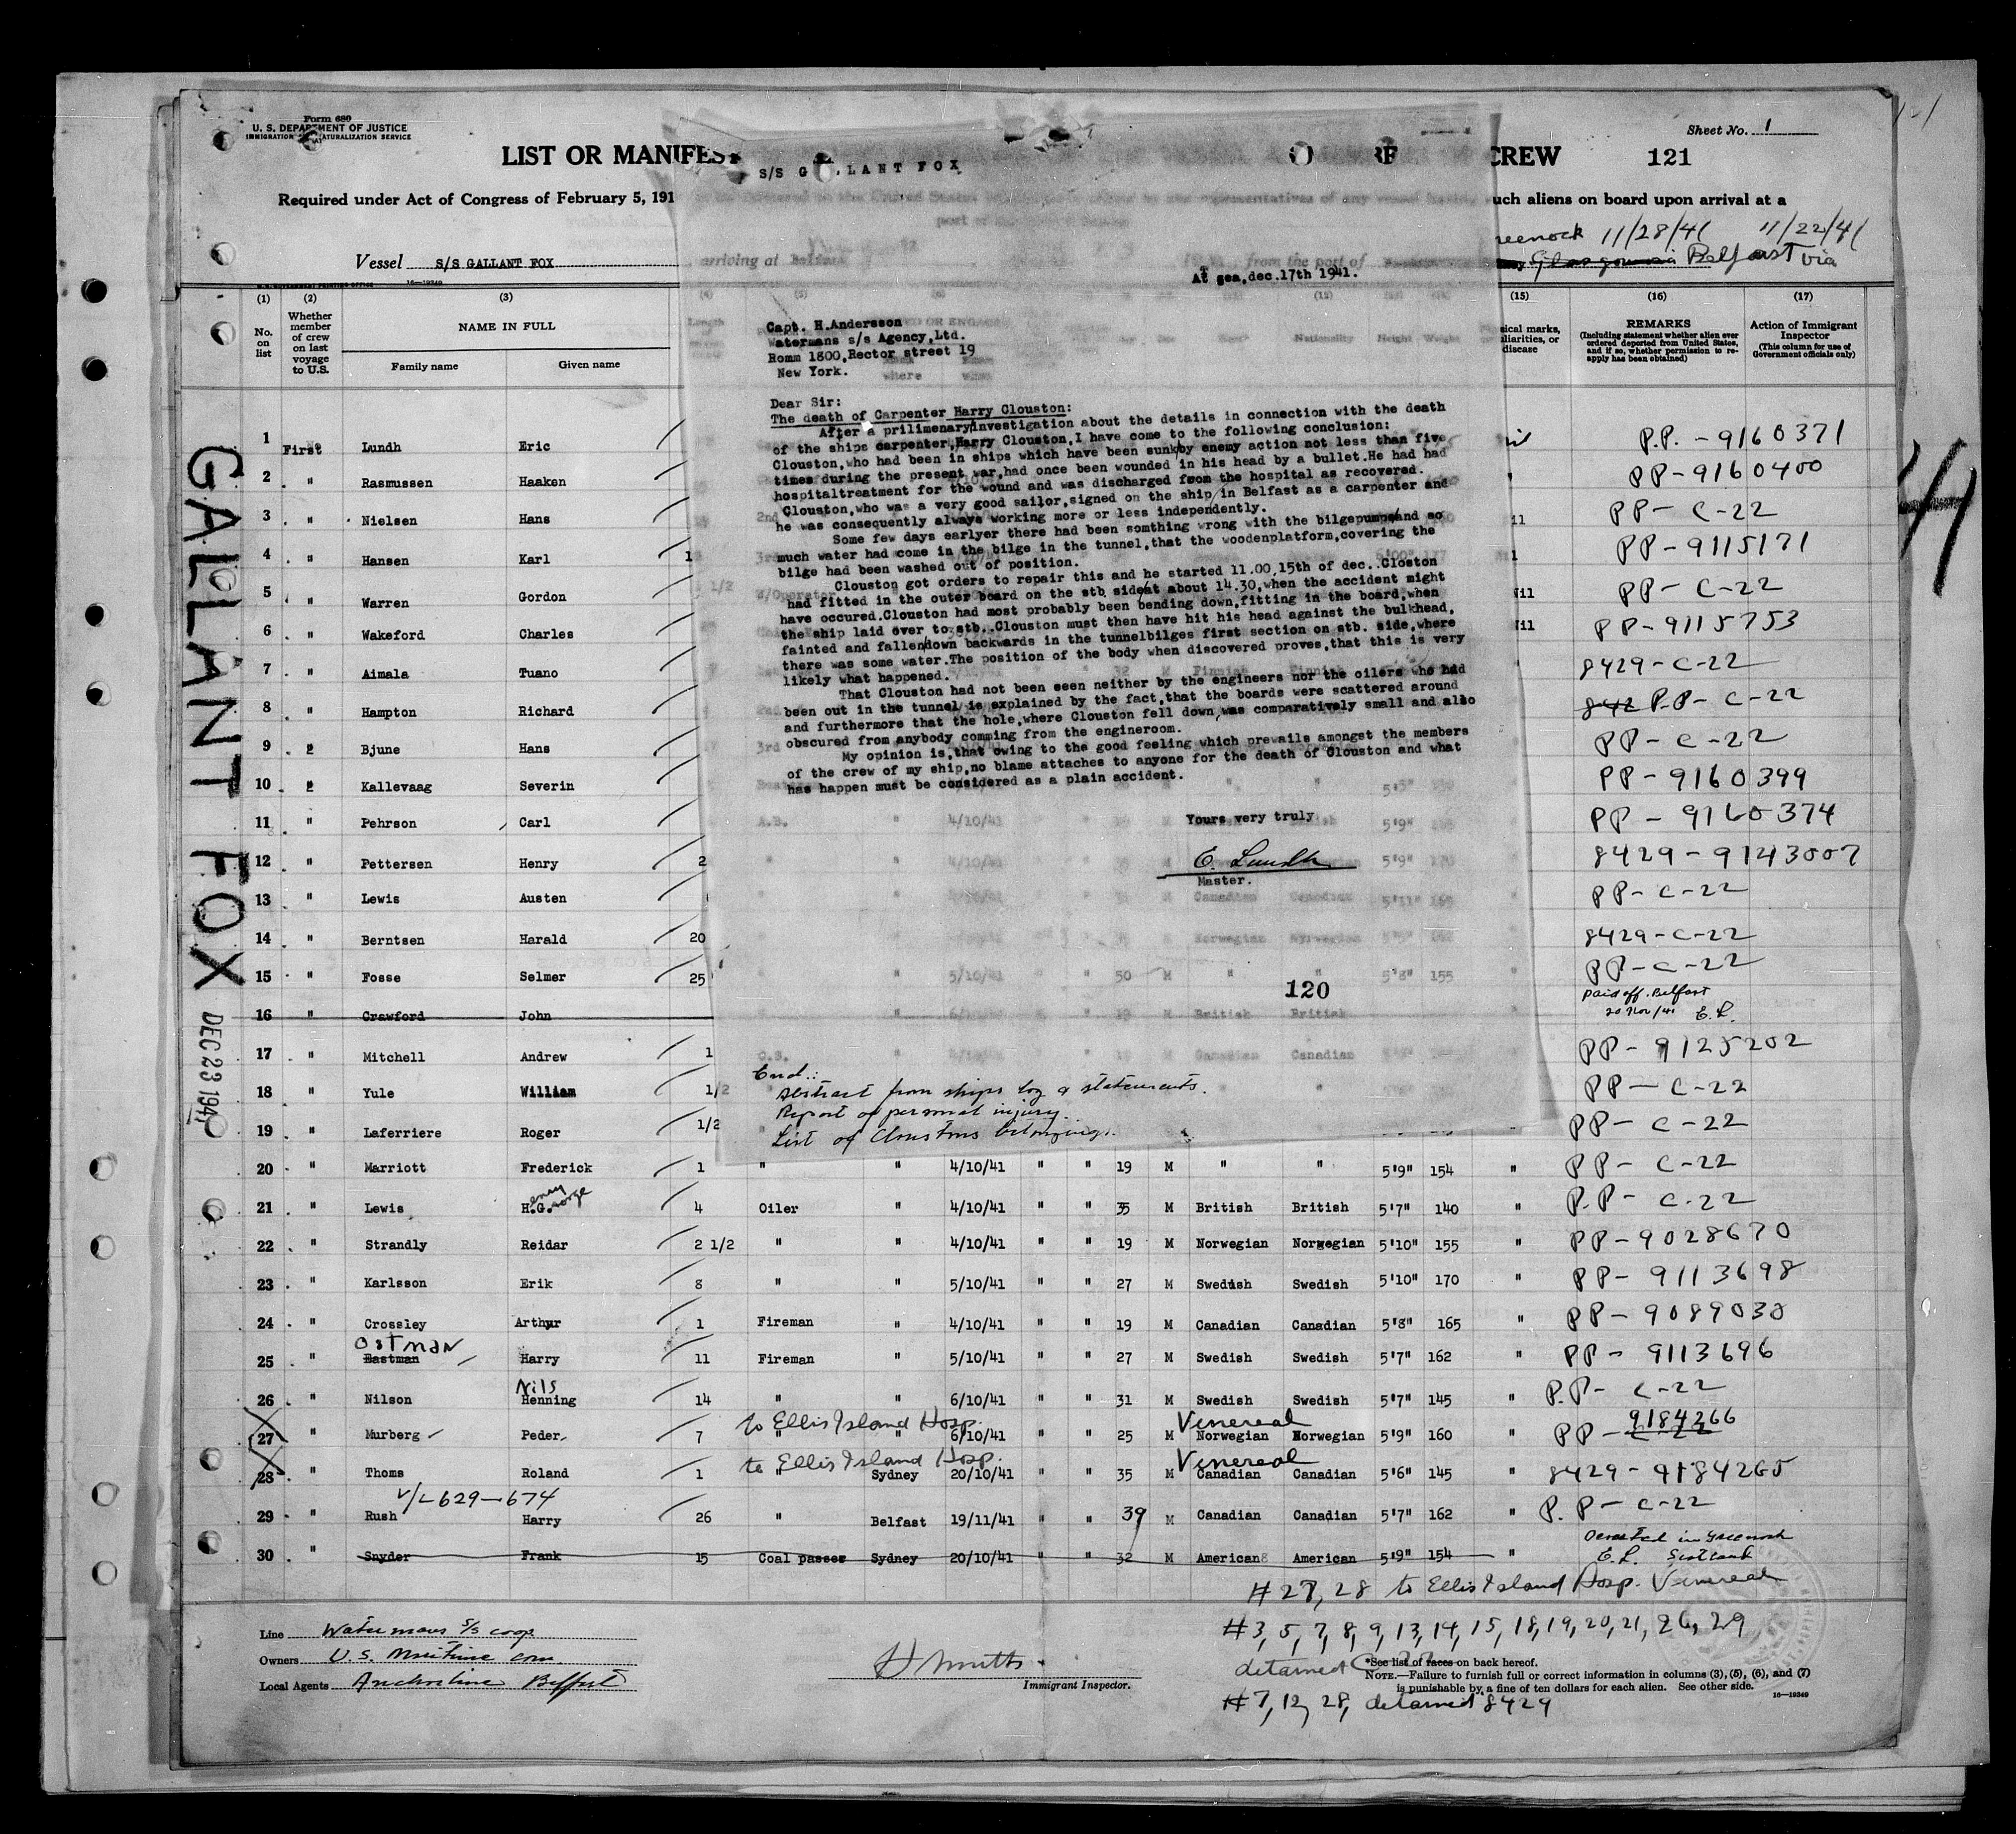 Form 680
U. S. DEPARTMENT OF JUSTICE
IMMIGRATION NATURALIZATION SERVICE
Sheet No. 1
LIST OR MANIFEST
CREW 121
Required under Act of Congress of February 5, 191
uch aliens on board upon arrival at a
reenock 11/28/41 11/22/41
Vessel S/S GALLANT FOX
arriving at
from the port of
Belfast via
S/S GALLANT FOX
At sea,dec.17th 1941.
Capt. H.Andersson
Watermans s/s Agency,Ltd.
Romm 1800,Rector street 19
New York.
Dear Sir:
The death of Carpenter Harry Clouston:
After a prilimenary investigation about the details in connection with the death
of the ships carpenter,Harry Clouston,I have come to the following conclusion:
Clouston,who had been in ships which have been sunk by enemy action not less than five
times during the present war,had once been wounded in his head by a bullet.He had had
hospitaltreatment for the wound and was discharged from the hospital as recovered.
Clouston,who was a very good sailor,signed on the ship in Belfast as a carpenter and
he was consequently always working more or less independently.
Some few days earlyer there had been somthing wrong with the bilgepumps and so
much water had come in the bilge in the tunnel,that the woodenplatform,covering the
bilge had been washed out of position.
Clouston got orders to repair this and he started 11.00,15th of dec..Closton
had fitted in the outer board on the stb side at about 14.30,when the accident might
have occured.Clouston had most probably been bending down,fitting in the board,when
the ship laid over to stb..Clouston must then have hit his head against the bulkhead,
fainted and fallen down backwards in the tunnelbilges first section on stb. side,where
there was some water.The position of the body when discovered proves,that this is very
likely what happened.
That Clouston had not been seen neither by the engineers nor the oilers who had
been out in the tunnel is explained by the fact,that the boards were scattered around
and furthermore that the hole,where Clouston fell down,was comparatively small and also
obscured from anybody comming from the engineroom.
My opinion is,that owing to the good feeling which prevails amongst the members
of the crew of my ship,no blame attaches to anyone for the death of Clouston and what
has happen must be considered as a plain accident.
Yours very truly
E. Lundh
Master.
120
Encl.:
Abstract from ships log & statements.
Report of personal injury.
List of Cloustons belongings.
GALLANT FOX
DEC 23 1941
(1) (2) (3) (15) (16) (17)
No. on list
Whether member of crew on last voyage to U.S.
NAME IN FULL
Family name Given name
sical marks, uliarities, or disease
REMARKS
(Including statement whether alien ever ordered deported from United States, and if so, whether permission to reapply has been obtained)
Action of Immigrant Inspector
(This column for use of Government officials only)
1 First Lundh Eric P.P. - 9160371
2 " Rasmussen Haaken PP-9160400
3 " Nielsen Hans PP- C-22
4 " Hansen Karl PP-9115171
5 " Warren Gordon 1/2 Nil PP- C-22
6 " Wakeford Charles Nil PP-9115753
7 " Aimala Tuano 8429-C-22
8 " Hampton Richard 842 P.P- C-22
9 " Bjune Hans PP-C-22
10 " Kallevaag Severin PP-9160399
11 " Pehrson Carl PP-9160374
12 " Pettersen Henry 8429-9143007
13 " Lewis Austen PP-C-22
14 " Berntsen Harald 20 8429-C-22
15 " Fosse Selmer 25 5/10/41 50 M 5'8" 155 PP-C-22
16 " Crawford John Paid off. Belfast 20 Nov/41 E.L.
17 " Mitchell Andrew 1 PP-9125202
18 " Yule William 1/2 PP-C-22
19 " Laferriere Roger 1/2 PP-C-22
20 " Marriott Frederick 1 " " 4/10/41 " " 19 M " " 5'9" 154 " PP- C-22
21 " Lewis H.G. enry eorge 4 Oiler " 4/10/41 " " 35 M British British 5'7" 140 " P.P- C-22
22 " Strandly Reidar 2 1/2 " " 4/10/41 " " 19 M Norwegian Norwegian 5'10" 155 " PP-9028670
23 " Karlsson Erik 8 " " 5/10/41 " " 27 M Swedish Swedish 5'10" 170 " PP-9113698
24 " Crossley Arthur 1 Fireman " 4/10/41 " " 19 M Canadian Canadian 5'8" 165 " PP-9089030
25 " Eastman Ostman Harry 11 Fireman " 5/10/41 " " 27 M Swedish Swedish 5'7" 162 " PP-9113696
26 " Nilson Nils Henning 14 " " 6/10/41 " " 31 M Swedish Swedish 5'7" 145 " P.P- C-22
to Ellis Island Hosp. Venereal
27 " Murberg Peder 7 " " 6/10/41 " " 25 M Norwegian Norwegian 5'9" 160 " PP- C-22 9184266
to Ellis Island Hosp. Venereal
28 " Thoms Roland 1 " Sydney 20/10/41 " " 35 M Canadian Canadian 5'6" 145 " 8429-9184265
V/L 629-674
29 " Rush Harry 26 " Belfast 19/11/41 " " 39 M Canadian Canadian 5'7" 162 " P.P- C-22
30 " Snyder Frank 15 Coal passer Sydney 20/10/41 " " 32 M American American 5'9" 154 " Deserted in Greenock E.L. Scotland
#27, 28 to Ellis Island Hosp. Venereal
#3, 5, 7, 8, 9, 13, 14, 15, 18, 19, 20, 21, 26, 29
detained C-22
#7, 12, 28, detained 8429
Line Watermans S/S coop
Owners U.S. Maritime Com.
Local Agents Anchorline Belfast
Immigrant Inspector.
*See list of races on back hereof.
NOTE.—Failure to furnish full or correct information in columns (3), (5), (6), and (7)
is punishable by a fine of ten dollars for each alien. See other side.
16—19349